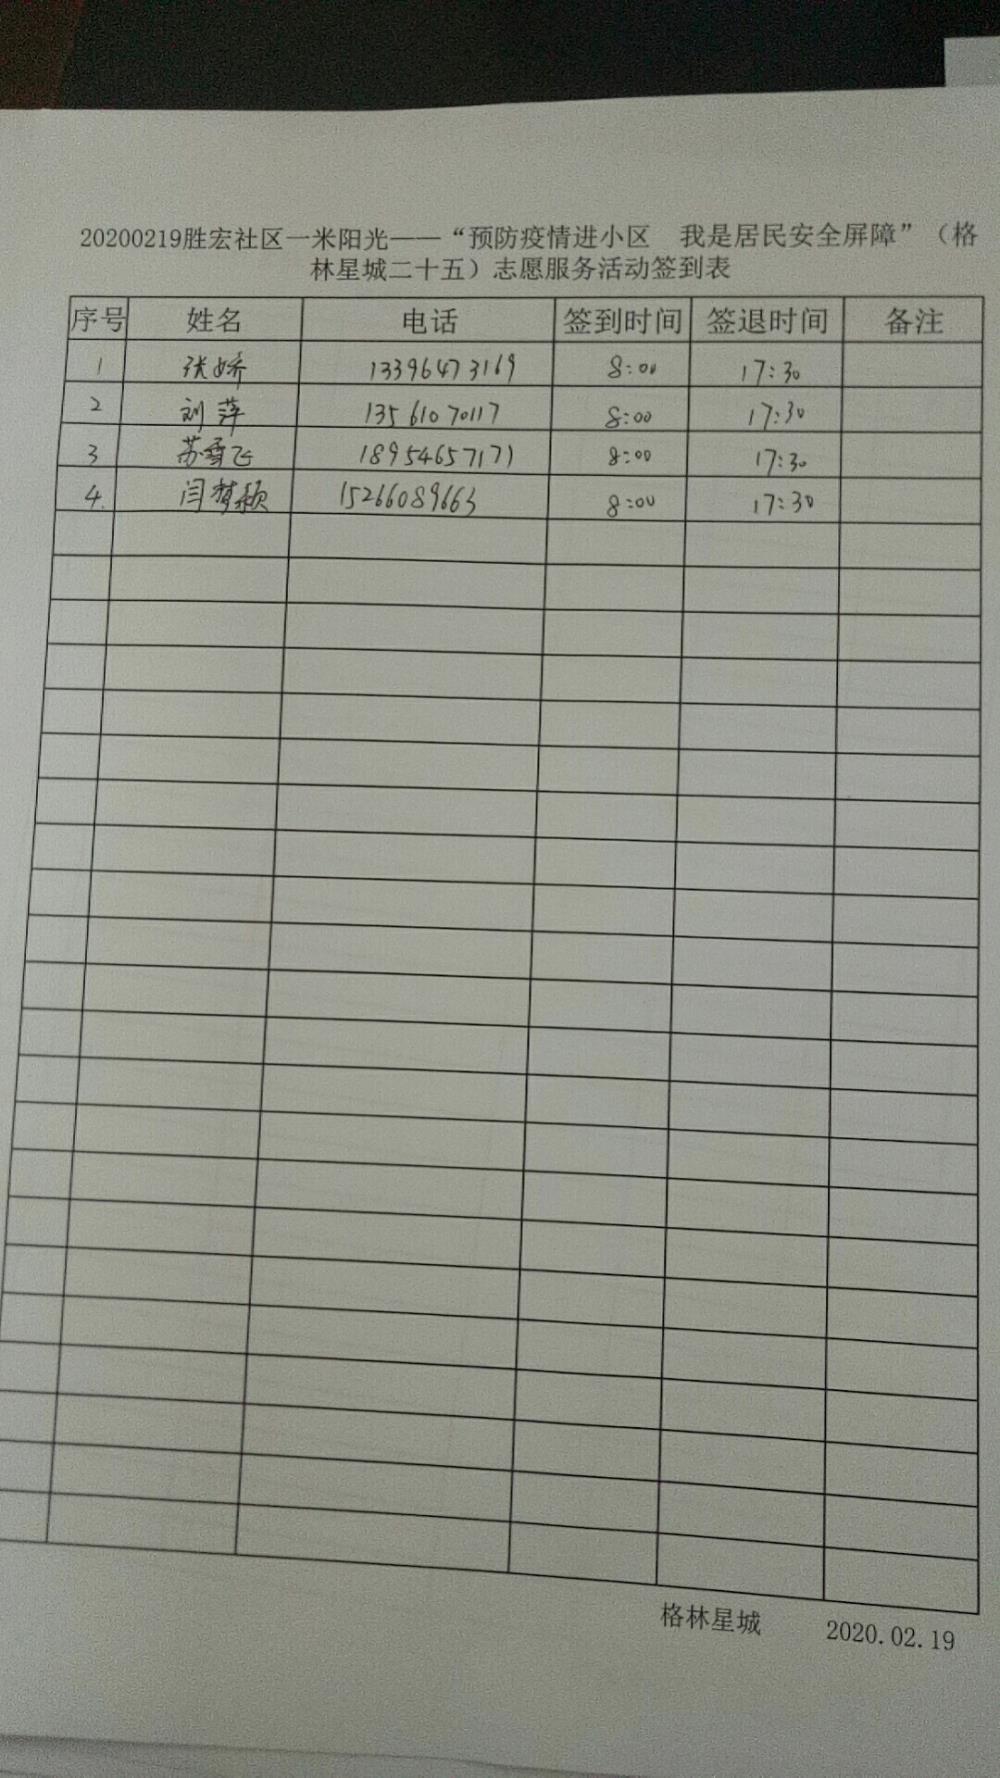 20200219胜宏社区一米阳光——“预防疫情进小区　我是居民安全屏障”（格
林星城二十五）志愿服务活动签到表
序号 姓名 电话 签到时间 签退时间 备注
1 张娇 13396473169 8:00 17:30
2 刘萍 13561070117 8:00 17:30
3 苏雪飞 18954657171 8:00 17:30
4. 闫梦颖 15266089663 8:00 17:30
格林星城 2020.02.19